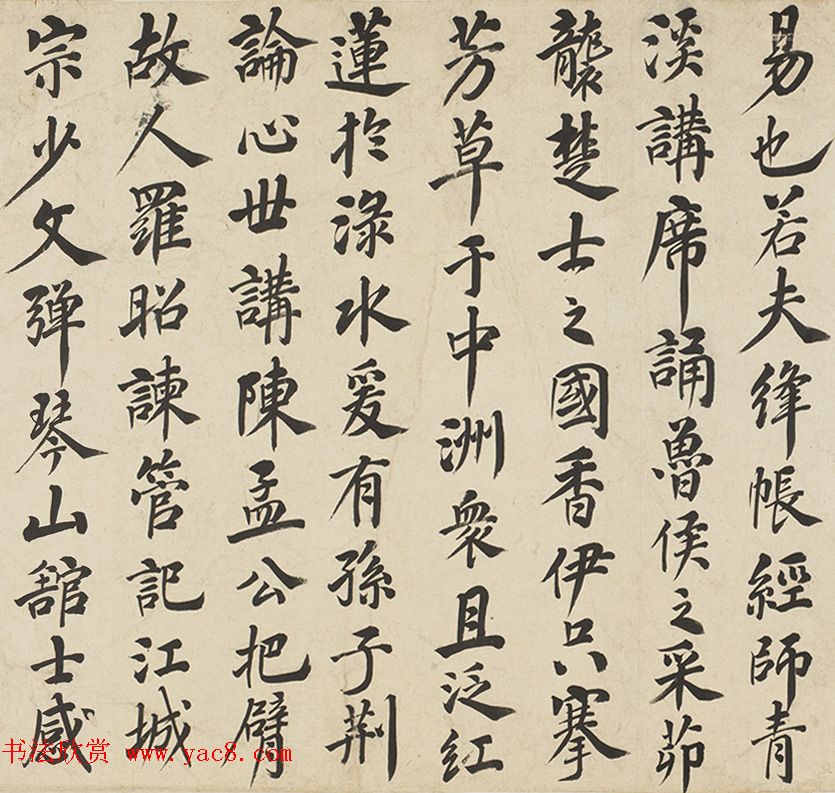 易也若夫絳帳經師青
溪講席誦魯侯之采茆
襲楚士之國香伊只搴
芳草于中洲衆且泛紅
蓮於渌水爰有孫子荆
論心世講陳孟公把臂
故人羅昭諫管記江城
宗少文弹琴山舘士感
书法欣赏 www.yac8.com